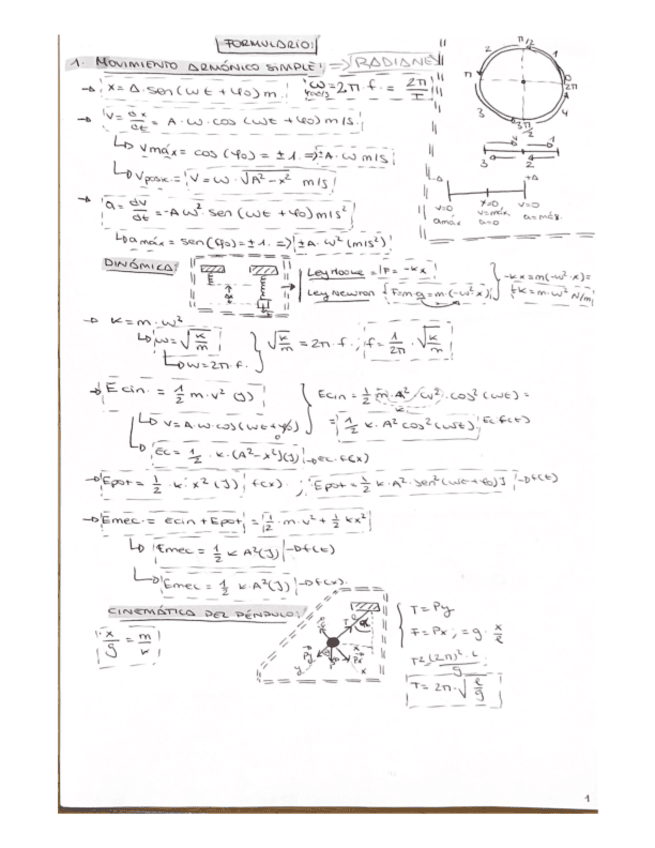 FORMULARIO:
1. MOVIMIENTO ARMÓNICO SIMPLE: => RADIANES
→ x = A · sen(ωt + φ0) m    ω = 2π · f. = 2π/T
rad/s
→ v = dx/dt = A · ω · cos (ωt + φ0) m/s
↳ vmáx = cos (φ0) = ±1. => ±A · ω m/s
↳ vposic. = V = ω · √A² - x² m/s
→ a = dv/dt = -A ω² · sen (ωt + φ0) m/s²
↳ a máx = sen(φ0) = ±1. => ±A · ω² (m/s²)
π/2
2 1
π 0 2π
3 4
3π/2
1
3 2
-A +A
v=0 x=0 v=0
amáx v=máx. a=máx.
a=0
DINÁMICA:
Ley Hooke = F = -kx
Ley Newton F = m·a = m·(-ω²·x)
-kx = m(-ω²·x) =
k = m·ω² N/m
→ k = m · ω²
↳ ω = √k/m
↳ ω = 2π · f.
√k/m = 2π · f. ; f = 1/2π · √k/m
→ Ecin. = 1/2 m · v² (J)
Ecin = 1/2 m · A² · ω² · cos² (ωt) =
k
↳ v = A · ω · cos(ωt + φ0)
0
= 1/2 k · A² cos² (ωt) Ec f(t)
↳ Ec = 1/2 · k · (A² - x²) (J) → Ec · f(x)
→ Epot = 1/2 · k · x² (J) f(x) . ; Epot = 1/2 k · A² · sen² (ωt + φ0) J → f(t)
→ Emec. = Ecin + Epot = 1/2 · m · v² + 1/2 kx²
↳ Emec = 1/2 k A² (J) → f(t)
↳ Emec = 1/2 k · A² (J) → f(x).
CINEMÁTICA DEL PÉNDULO:
x/g = m/k
T
α
Py
P
Px
y
x
T = Py
F = Px ; = g · x/l
T² = (2π)² · l/g
T = 2π · √l/g
1